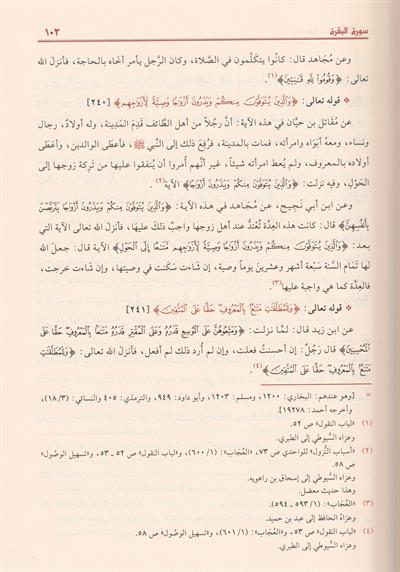 سورة البقرة ١٠٣
وعن مُجاهد قال: كانُوا يتكلَّمون في الصَّلاة، وكان الرَّجل يأمر أخَاه بالحاجة، فأنزلَ الله
تعالى: ﴿وَقُومُوا لِلَّهِ قَانِتِينَ﴾(١).
❖ قوله تعالى: ﴿وَالَّذِينَ يُتَوَفَّوْنَ مِنكُمْ وَيَذَرُونَ أَزْوَاجًا وَصِيَّةً لِّأَزْوَاجِهِم﴾ [٢٤٠]
عن مُقاتل بن حيَّان في هذه الآية: أنَّ رجُلاً من أهل الطَّائف قَدِمَ المَدِينة، وله أولادٌ، رجال
ونساء، ومعهُ أبوَاه وامرأته، فمات بالمدينة، فرُفعَ ذلك إلى النبي ﷺ، فأعطى الوالدين، وأعطَى
أولاده بالمعروف، ولم يُعط امرأته شيئاً، غير أنَّهم أُمروا أن يُنفقوا عليها من تَركَة زوجها إلى
الحَوْلِ، وفيه نزلت: ﴿وَالَّذِينَ يُتَوَفَّوْنَ مِنكُمْ وَيَذَرُونَ أَزْوَاجًا﴾ الآية(٢).
وعن ابن أبي نَجيح، عن مُجَاهد في هذه الآية: ﴿وَالَّذِينَ يُتَوَفَّوْنَ مِنكُمْ وَيَذَرُونَ أَزْوَاجًا يَتَرَبَّصْنَ
بِأَنفُسِهِنَّ﴾ قال: كانت هذه العِدَّة تُعْتَدُّ عند أهل زوجها واجبٌ ذلكَ عليهَا، فأنزلَ الله تعالى الآية التي
بعد: ﴿وَالَّذِينَ يُتَوَفَّوْنَ مِنكُمْ وَيَذَرُونَ أَزْوَاجًا وَصِيَّةً لِّأَزْوَاجِهِم مَّتَاعًا إِلَى الْحَوْلِ﴾ الآية قال: جعلَ الله
لهَا تَمامَ السَّنة سَبْعة أشهر وعشرينَ يوماً وصيةً، إن شَاءَت سَكَنت في وصيتها، وإن شَاءت خرجت،
فالعِدَّة كما هي واجبة عليها(٣).
❖ قوله تعالى: ﴿وَلِلْمُطَلَّقَاتِ مَتَاعٌ بِالْمَعْرُوفِ حَقًّا عَلَى الْمُتَّقِينَ﴾ [٢٤١]
عن ابن زيد قال: لمَّا نزلت: ﴿وَمَتِّعُوهُنَّ عَلَى الْمُوسِعِ قَدَرُهُ وَعَلَى الْمُقْتِرِ قَدَرُهُ مَتَاعًا بِالْمَعْرُوفِ حَقًّا عَلَى
الْمُحْسِنِينَ﴾ قال رَجُلٌ: إن أحسنتُ فعلت، وإن لم أُرد ذلك لم أفعل، فأنزلَ الله تعالى: ﴿وَلِلْمُطَلَّقَاتِ
مَتَاعٌ بِالْمَعْرُوفِ حَقًّا عَلَى الْمُتَّقِينَ﴾.(٤)
= [وهو عندهم: البخاري: ١٢٠٠، ومسلم: ١٢٠٣، وأبو داود: ٩٤٩، والترمذي: ٤٠٥ والنسائي: (١٨/٣)،
وأخرجه أحمد: ١٩٢٧٨].
(١) «لباب النقول» ص ٥٢.
وعزاه السُّيوطي إلى الطبري.
(٢) «أسباب النُّزول» للواحدي ص ٧٣، «العُجَاب»: (٦٠٠/١)، «لباب النقول» ص ٥٢ ـ ٥٣، «وتسهيل الوصُول»
ص ٥٨.
وعزاه السُّيوطي إلى إسحاق بن راهويه.
وهذا حديث معضل.
(٣) «العُجاب»: (٥٩٣/١ ـ ٥٩٤).
وعزاهُ الحافظ إلى عبد بن حميد.
(٤) «لباب النقول» ص ٥٣، و«العُجاب»: (٦٠١/١)، «وتسهيل الوصول» ص ٥٨.
وعزاه السُّيوطي إلى الطبري.